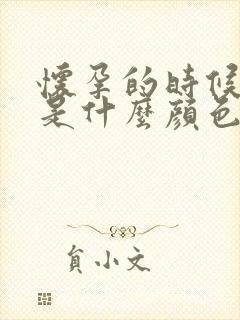 懷孕的時候
是什麼顏色
貟小文